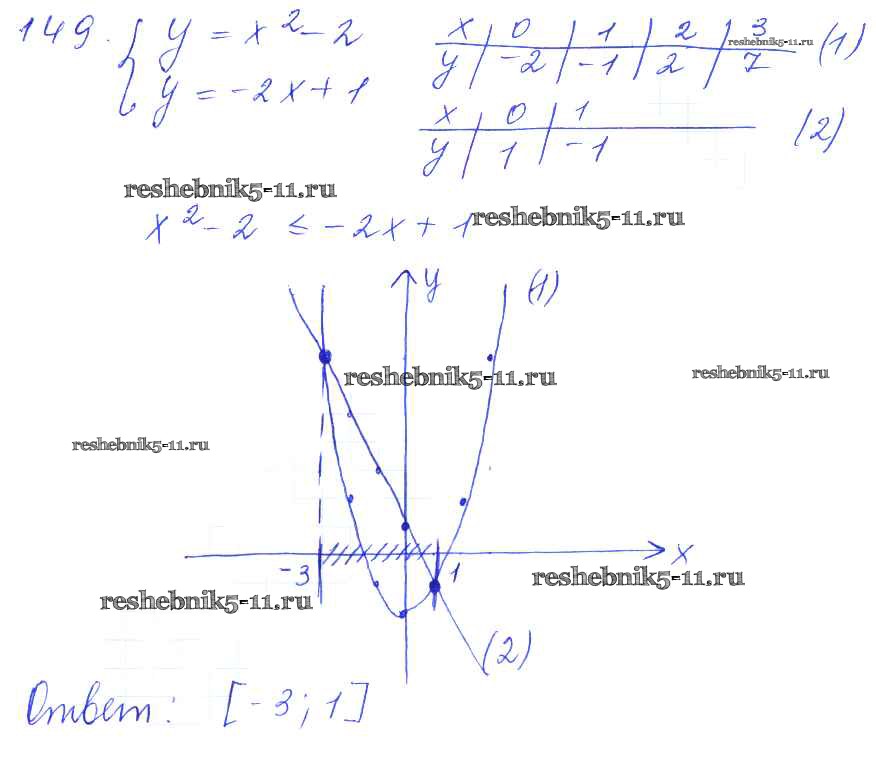 149. { y = x² - 2
y = -2x + 1
x | 0 | 1 | 2 | 3
y | -2 | -1 | 2 | 7 (1)
reshebnik5-11.ru
x | 0 | 1
y | 1 | -1 (2)
reshebnik5-11.ru
x² - 2 ≤ -2x + 1
reshebnik5-11.ru
y (1)
reshebnik5-11.ru
reshebnik5-11.ru
reshebnik5-11.ru
x
-3 1
reshebnik5-11.ru
reshebnik5-11.ru
(2)
Ответ: [-3; 1]